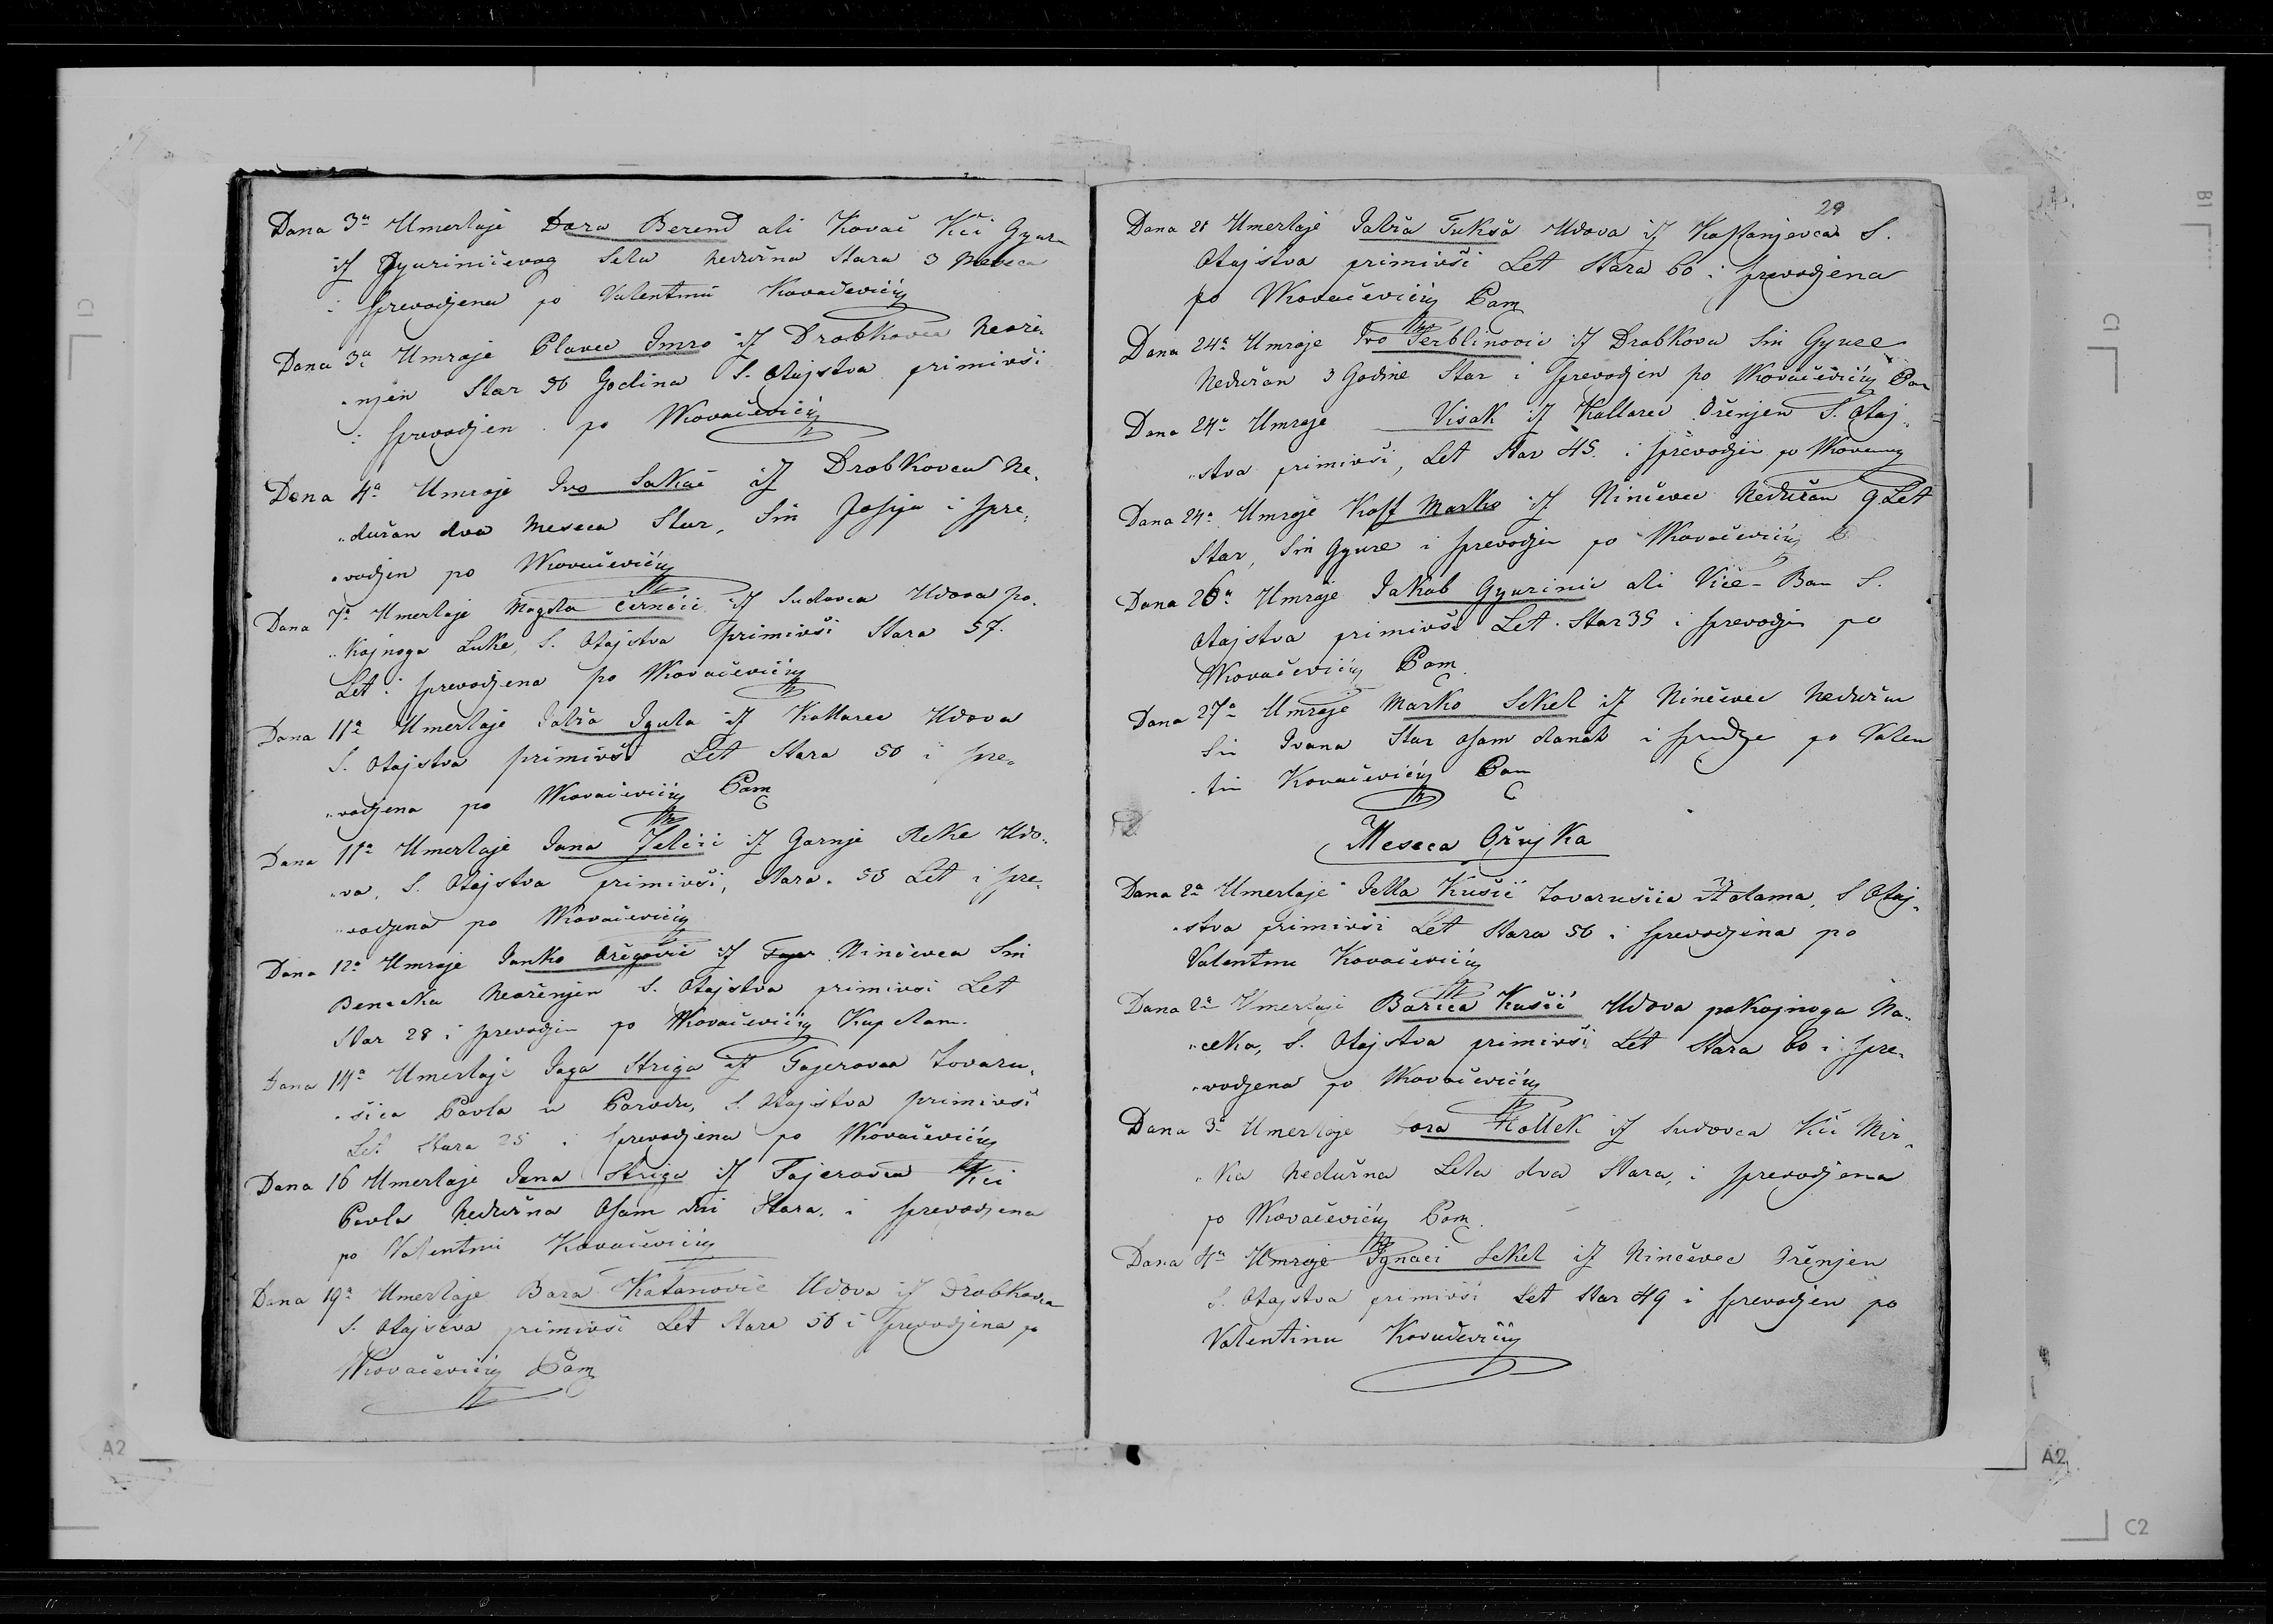 Dana 3a Umerlaje Dora Berend ali Kovač Kći Gyure
iz Gyuriničevog Sela nedužna Stara 3 Meseca
i sprevodjena po Valentinu Kovačevićy
Dana 3a Umroje Plavec Imro iz Drobkovca Neože„
„njen Star 50 Godina S. Otajstva primivši
i sprevodjen po VKovačevićy
Dana 4a Umroje Ivo Sakač iz Drobkovca Ne„
„dužan dva Meseca Star, Sin Josipa i spre„
„vodjen po VKovačevićy
Dana 7a Umerlaje Magda Černčić iz Sudovca Udova po„
„kojnoga Luke, S. Otajstva primivši Stara 57.
Let i sprevodjena po VKovačevićy
Dana 11a Umerlaje Jalža Igula iz Kallarec Udova
S. Otajstva primivši Let Stara 50 i spre„
„vodjena po VKovačevićy Pam
Dana 11a Umerlaje Jana Jelčić iz Gornje Reke Udo„
„va, S. Otajstva primivši, Stara 58 Let i spre„
„vodjena po VKovačevićy
Dana 12a Umroje Janko Ožegović iz Ninčevca Sin
Benedka Neoženjen S. Otajstva primivši Let
Star 28 i sprevodjen po VKovačevićy Kapelam.
Dana 14a Umerlaje Jaga Striga iz Fajerovca Tovaru„
„šica Pavla u Porodu, S. Otajstva primivši
Let Stara 25 i sprevodjena po VKovačevićy
Dana 16 Umerlaje Jana Striga iz Fajerovca Kći
Pavla Nedužna Osam dni Stara, i sprevodjena
po Valentinu Kovačevićy
Dana 19a Umerlaje Bara Katanović Udova iz Drobkovca
S. Otajstva primivši Let Stara 50 i sprevodjena po
VKovačevićy Pam
29
Dana 21 Umerlaje Jalža Tukša Udova iz Kostanjevca S.
Otajstva primivši Let Stara 60 i sprevodjena
po VKovačevićy Pam
Dana 24a Umroje Ivo Ferblinović iz Drobkova Sin Gyure
Nedužan 3 Godine Star i sprevodjen po VKovačevićy Pam
Dana 24a Umroje Visak iz Kallarec Oženjen S. Otaj„
„stva primivši, Let Star 45. i sprevodjen po
Dana 24a Umroje Koss Marko iz Ninčevec Nedužan 9 Let
Star, Sin Gyure i sprevodjen po VKovačevićy
Dana 26a Umroje Jakob Gyurinić ali Vice-Ban S.
Otajstva primivši Let Star 35 i sprevodjen po
VKovačevićy Pam
Dana 27a Umroje Marko Sekel iz Ninčevec Nedužan
Sin Ivana Star Osam danah i po Valen
„tin Kovačevićy Pam
Meseca Ožujka
Dana 2a Umerlaje Jella Kušić Tovarušica Adama, S Otaj„
„stva primivši Let Stara 50 i sprevodjena po
Valentinu Kovačevićy
Dana 2a Umerlaje Barica Kušić Udova pokojnoga Na„
„ceka, S. Otajstva primivši Let Stara 60 i spre„
„vodjena po VKovačevićy
Dana 3a Umerlaje Dora Kollek iz Sudovca Kći Mir„
„ka Nedužna Leta dva Stara, i sprevodjena
po VKovačevićy Pam.
Dana 4a Umroje Ignaci Sekel iz Ninčevec Oženjen
S. Otajstva primivši Let Star 49 i sprevodjen po
Valentinu Kovačevićy
A2
C1
B1
C1
A2
C2